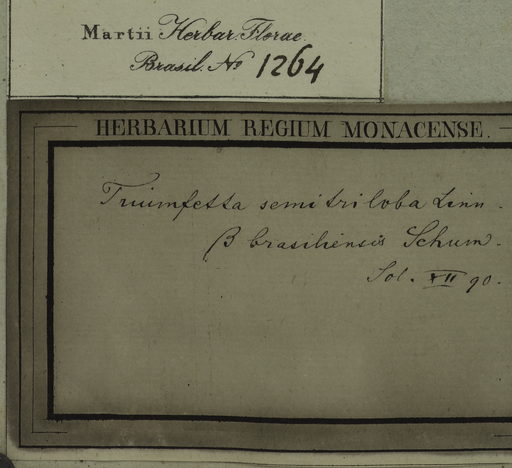 Martii Herbar. Florae
Brasil. No 1264
HERBARIUM REGIUM MONACENSE.
Triumfetta semitriloba Linn.
β brasiliensis Schum.
Sol. XII 90.